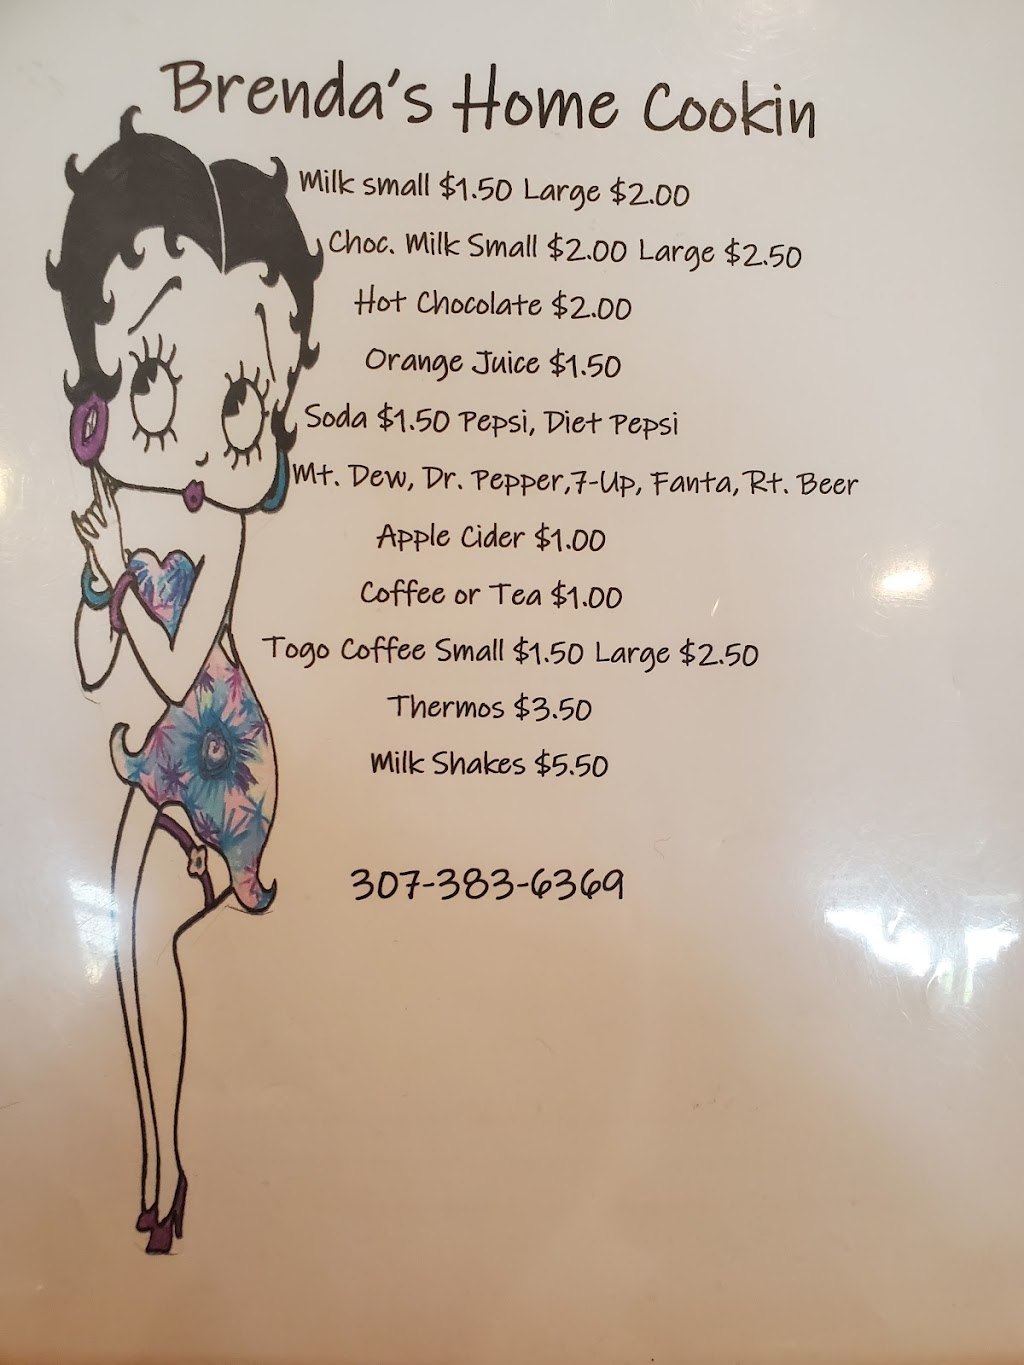 Brenda's Home Cookin
Milk small $1.50 Large $2.00
Choc. Milk Small $2.00 Large $2.50
Hot Chocolate $2.00
Orange Juice $1.50
Soda $1.50 Pepsi, Diet Pepsi
Mt. Dew, Dr. Pepper,7-Up, Fanta, Rt. Beer
Apple Cider $1.00
Coffee or Tea $1.00
Togo Coffee Small $1.50 Large $2.50
Thermos $3.50
Milk Shakes $5.50
307-383-6369